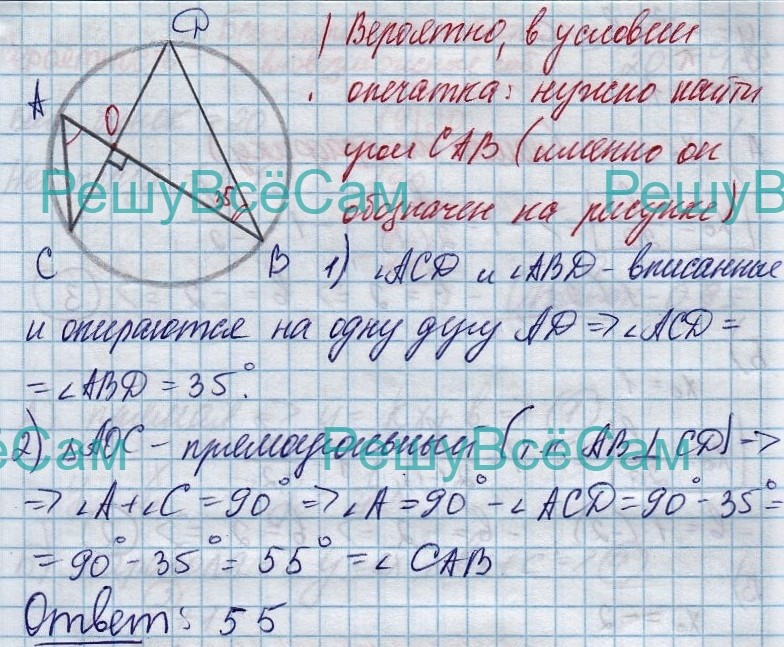 D
Вероятно, в условии
A
O
опечатка: нужно найти
угол CAB (именно он
РешуВсёСам
РешуВ
35
обозначен на рисунке)
C
B
1) ∠ACD и ∠ABD - вписанные
и опираются на одну дугу AD => ∠ACD =
= ∠ABD = 35°.
2) △AOC - прямоугольный (т.к. AB ⊥ CD) =>
ёСам
РешуВсёСам
=> ∠A + ∠C = 90° => ∠A = 90° - ∠ACD = 90° - 35° =
= 90° - 35° = 55° = ∠CAB
Ответ: 55